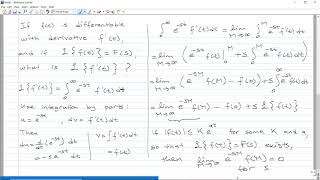 If f(t) is differentiable
with derivative f'(t),
and if ℒ{f(t)} = F(s),
what is ℒ{f'(t)} ?
ℒ{f'(t)} = ∫₀^∞ e^{-st} f'(t) dt
Use integration by parts:
u = e^{-st}, dv = f'(t) dt
Then
du = d/dt (e^{-st}) dt
= -s e^{-st} dt
v = ∫ f'(t) dt
= f(t)
∫₀^∞ e^{-st} f'(t) dt = lim_{M→∞} ∫₀^M e^{-st} f'(t) dt
= lim_{M→∞} e^{-st} f(t) |₀^M + s ∫₀^M e^{-st} f(t) dt
= lim_{M→∞} (e^{-sM} f(M) - f(0)) + s ∫₀^∞ e^{-st} f(t) dt
= lim_{M→∞} e^{-sM} f(M) - f(0) + s ℒ{f(t)}
If |f(t)| ≤ K e^{at} for some K and a,
so that ℒ{f(t)} = F(s) exists,
then lim_{M→∞} e^{-sM} f(M) = 0
for s